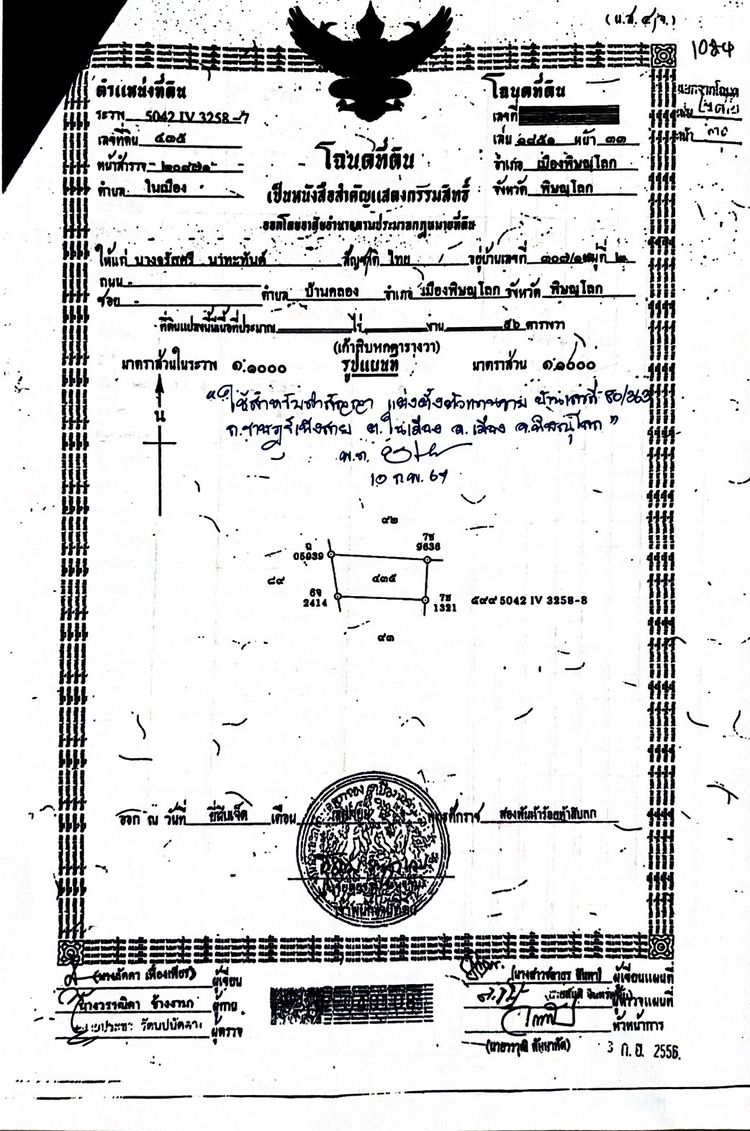 (น.ส. ๔ จ.)
1084
ตำแหน่งที่ดิน
โฉนดที่ดิน
ระวาง 5042 IV 3258-7
เลขที่
เลขที่ดิน ๔๓๕
เล่ม ๑๘๕๑ หน้า ๓๓
หน้าสำรวจ ๒๐๘๗๑
อำเภอ เมืองพิษณุโลก
ตำบล ในเมือง
จังหวัด พิษณุโลก
หน้า ๓๐
โฉนดที่ดิน
เป็นหนังสือสำคัญแสดงกรรมสิทธิ์
ออกโดยอาศัยอำนาจตามประมวลกฎหมายที่ดิน
ให้แก่ นางจรัสศรี สัญชาติ ไทย อยู่บ้านเลขที่ ๓๐๘/๑๒ หมู่ที่ ๒
ถนน -
ซอย - ตำบล บ้านคลอง อำเภอ เมืองพิษณุโลก จังหวัด พิษณุโลก
ที่ดินแปลงนี้มีเนื้อที่ประมาณ ไร่ งาน ๙๖ ตารางวา
(เก้าสิบหกตารางวา)
มาตราส่วนในระวาง ๑:๑๐๐๐ รูปแผนที่ มาตราส่วน ๑:๑๐๐๐
น
"ใช้สำหรับทำสัญญา แต่งตั้งตัวแทนขาย บ้านเลขที่ 80/363
ต.ในเมือง อ.เมือง จ.พิษณุโลก"
พ.ต.
๑๐ ก.พ. ๖๗
๙๒
ฉ
05939
7ช
9636
๘๙
๔๓๕
6จ
2414
7ช
1321
๕๙๙ 5042 IV 3258-8
๙๓
ออก ณ วันที่ ยี่สิบเจ็ด เดือน พุทธศักราช สองพันห้าร้อยห้าสิบหก
ผู้เขียน
ผู้เขียนแผนที่
ผู้ทาน
ผู้ตรวจแผนที่
ผู้ตรวจ
หัวหน้าการ
3 ก.ย. 2556